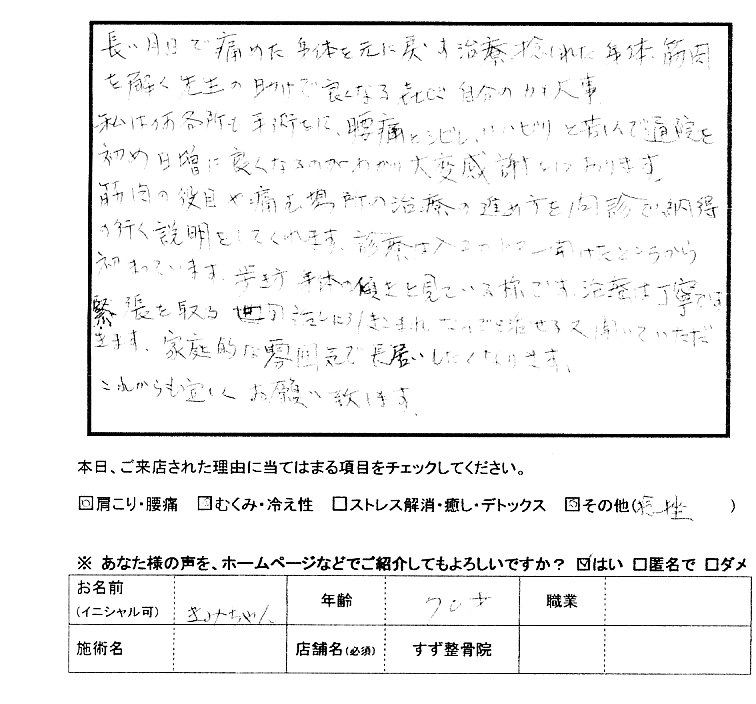 長い月日で痛めた身体を元に戻す治療、捻れた身体、筋肉
を解く先生の助けで良くなる 自分の力が大事
私は 各所も手術をし、腰痛とシビレ、リハビリと 通院を
初め日増に良くなるのがわかり大変感謝しております。
筋肉の役目や痛む場所の治療の進め方を問診で、納得
の行く説明をしてくれます、診療は ドアー開けたところから
初まっています、歩き方身体の傾きと見ている様です、治療は丁寧で
緊張を取る 話に引きこまれ なんでも話せる又聞いていただ
きます、家庭的な雰囲気で長居したくなります、
これからも宜しくお願い致します、
本日、ご来店された理由に当てはまる項目をチェックしてください。
☑肩こり・腰痛 ☑むくみ・冷え性 □ストレス解消・癒し・デトックス ☑その他( )
※ あなた様の声を、ホームページなどでご紹介してもよろしいですか? ☑はい □匿名で □ダメ
お名前
(イニシャル可) きみちゃん 年齢 70才 職業
施術名 店舗名(必須) すず整骨院